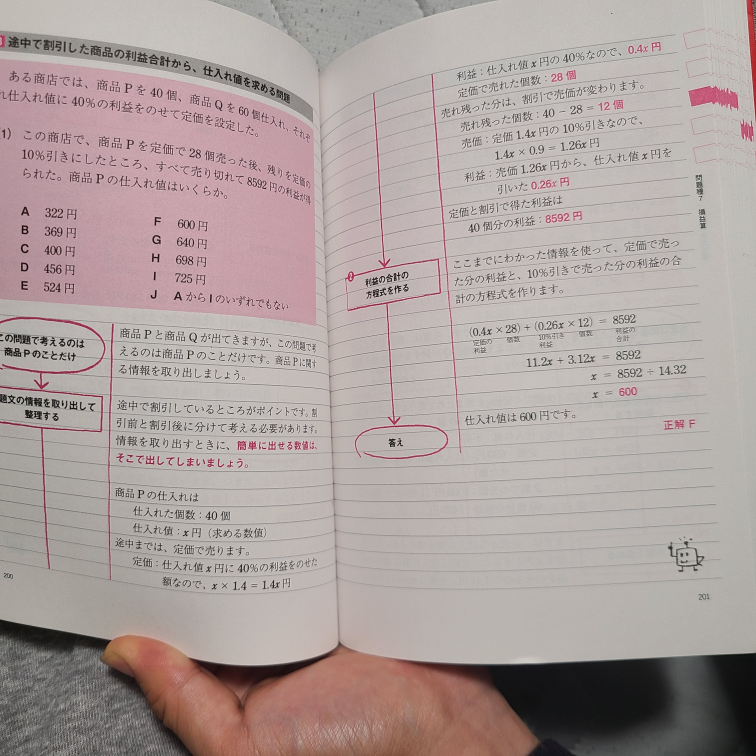 途中で割引した商品の利益合計から、仕入れ値を求める問題
ある商店では、商品Pを40個、商品Qを60個仕入れ、それぞ
れ仕入れ値に40%の利益をのせて定価を設定した。
(1) この商店で、商品Pを定価で28個売った後、残りを定価の
10%引きにしたところ、すべて売り切れて8592円の利益が得
られた。商品Pの仕入れ値はいくらか。
A 322円
B 369円
C 400円
D 456円
E 524円
F 600円
G 640円
H 698円
I 725円
J AからIのいずれでもない
この問題で考えるのは
商品Pのことだけ
商品Pと商品Qが出てきますが、この問題で考
えるのは商品Pのことだけです。商品Pに関す
る情報を取り出しましょう。
題文の情報を取り出して
整理する
途中で割引しているところがポイントです。割
引前と割引後に分けて考える必要があります。
情報を取り出すときに、簡単に出せる数値は、
そこで出してしまいましょう。
商品Pの仕入れは
仕入れた個数:40個
仕入れ値:x円(求める数値)
途中までは、定価で売ります。
定価:仕入れ値x円に40%の利益をのせた
額なので、x × 1.4 = 1.4x円
200
利益:仕入れ値x円の40%なので、0.4x円
定価で売れた個数:28個
売れ残った分は、割引で売価が変わります。
売れ残った個数:40 − 28 = 12個
売価:定価1.4x円の10%引きなので、
1.4x × 0.9 = 1.26x円
利益:売価1.26x円から、仕入れ値x円を
引いた0.26x円
定価と割引で得た利益は
40個分の利益:8592円
利益の合計の
方程式を作る
ここまでにわかった情報を使って、定価で売っ
た分の利益と、10%引きで売った分の利益の合
計の方程式を作ります。
(0.4x × 28) + (0.26x × 12) = 8592
定価の 個数 10%引き 個数 利益の
利益 利益 合計
11.2x + 3.12x = 8592
x = 8592 ÷ 14.32
x = 600
答え
仕入れ値は600円です。
正解 F
問題種7 損益算
201